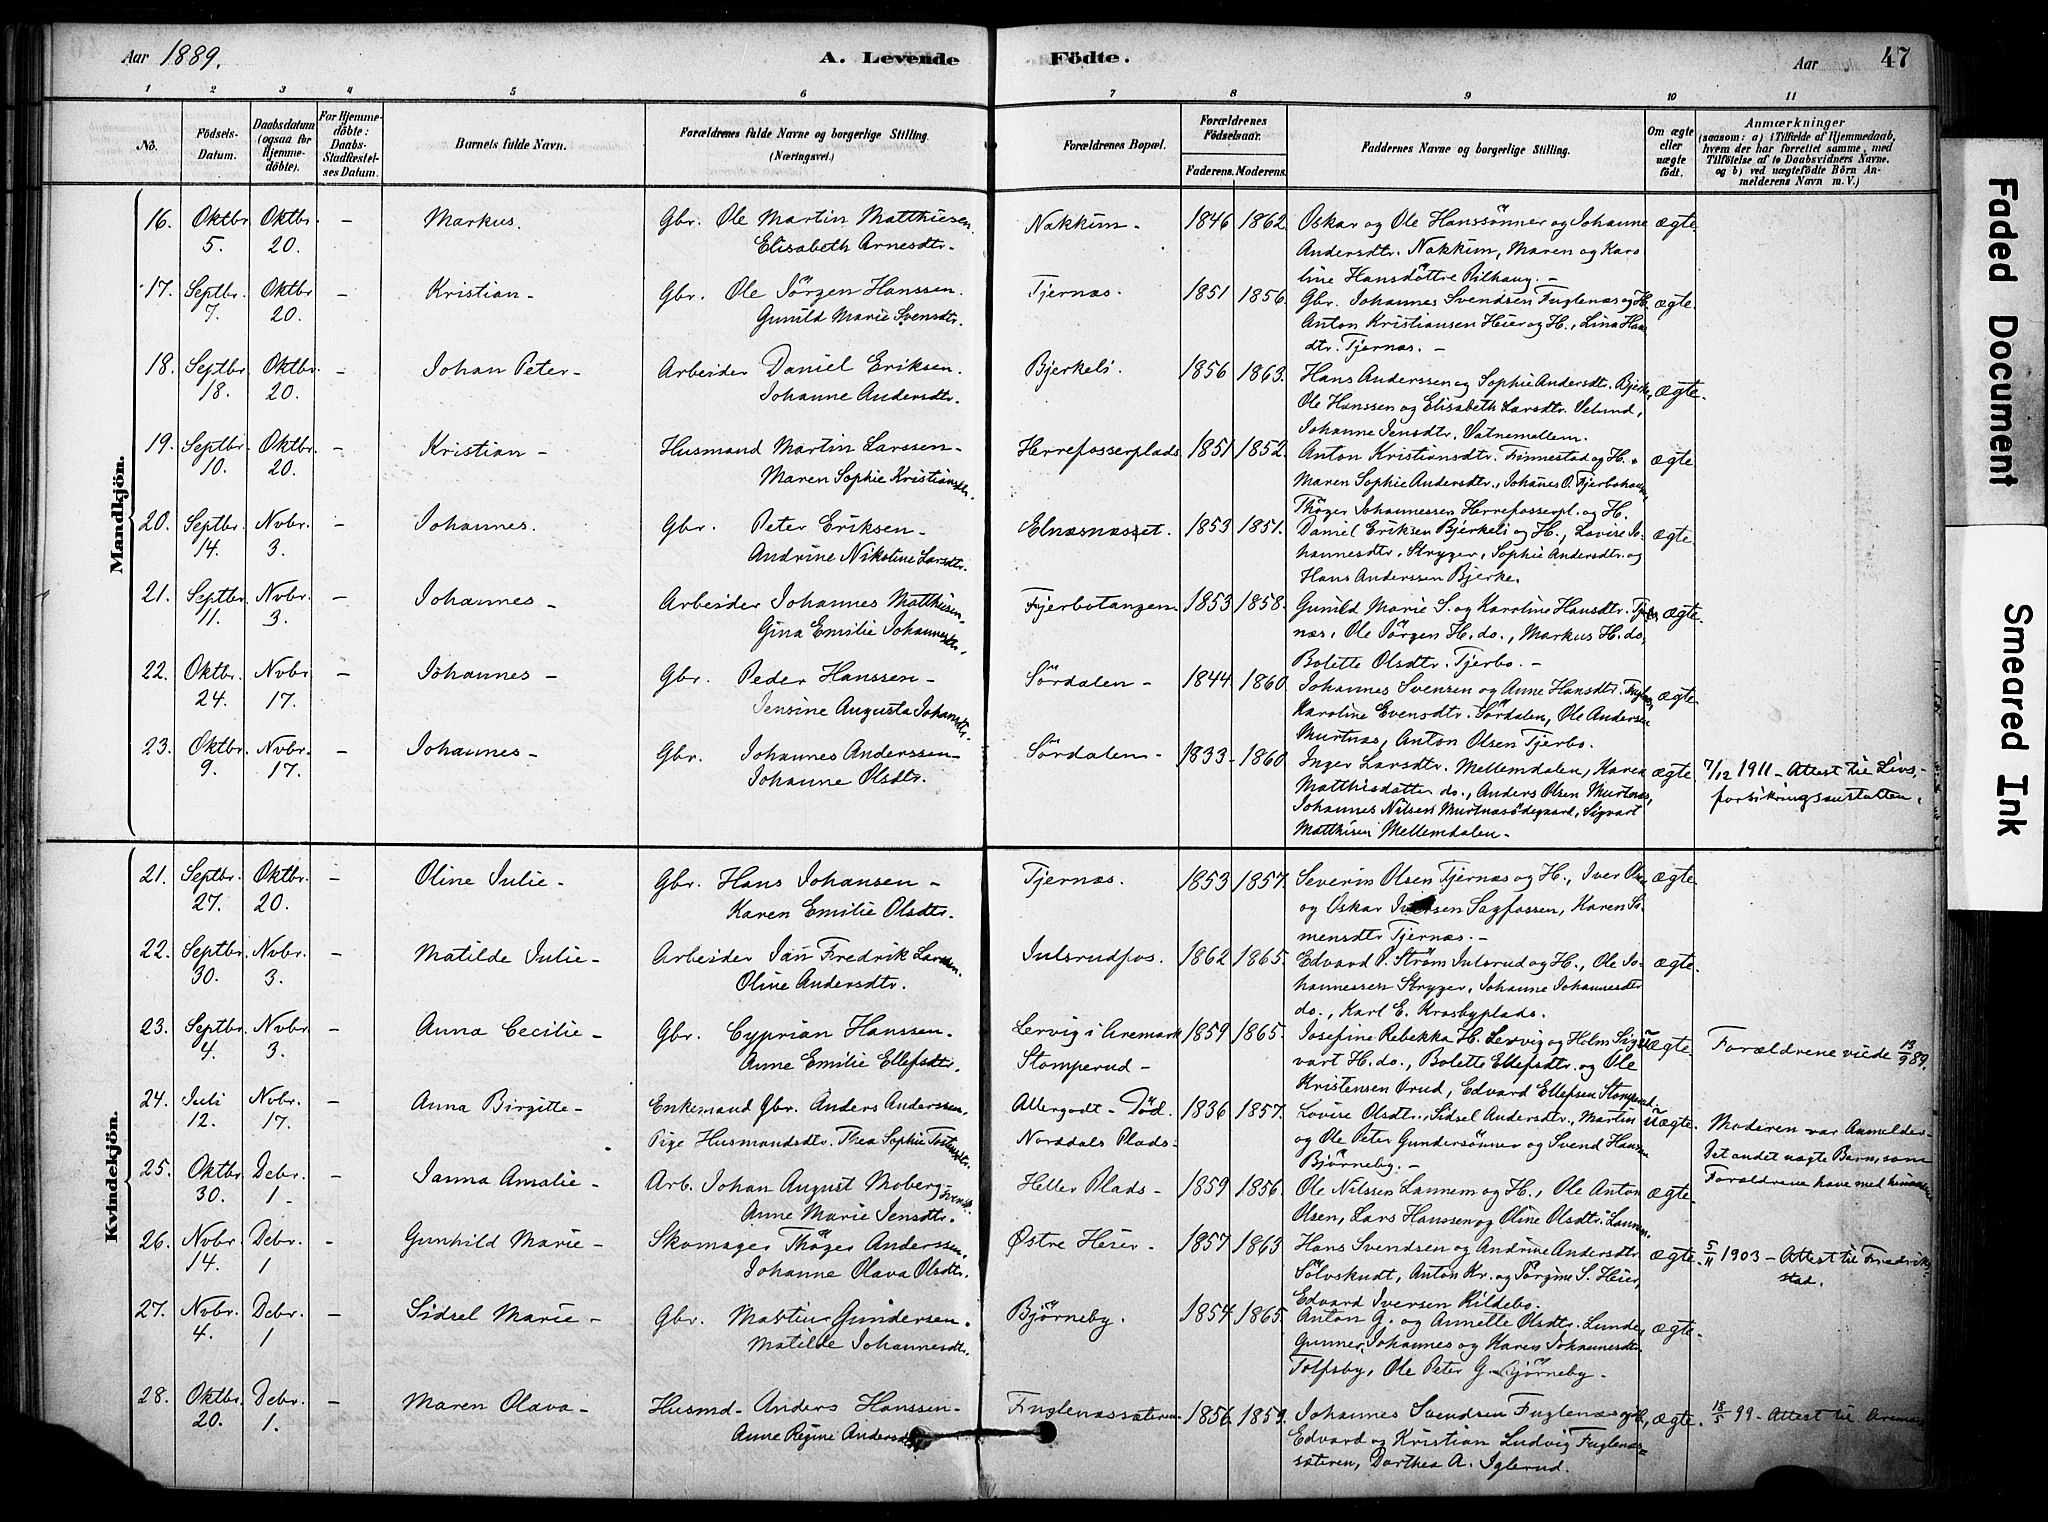 Aar 1889.
A. Levende Födte.
Aar
47
1 2 3 4 5 6 7 8 9 10 11
No.
Födsels-Datum.
Daabsdatum (ogsaa for Hjemme-döbte).
For Hjemme-döbte: Daabs-Stadfæstel-ses Datum.
Barnets fulde Navn.
Forældrenes fulde Navne og borgerlige Stilling. (Næringsvei.)
Forældrenes Bopæl.
Forældrenes Födselsaar.
Faderens. Moderens.
Faddernes Navne og borgerlige Stilling.
Om ægte eller uægte födt.
Anmærkninger
(saasom: a) i Tilfælde af Hjemmedaab, hvem der har forrettet samme, med Tilföielse af to Daabsvidners Navne. og b) ved uægtefödte Börn An-melderens Navn m. V.)
Mandkjön.
16. Oktbr. 5. Oktbr. 20. - Markus. Gbr. Ole Martin Matthiesen Elisabeth Arnesdtr. Nakkim - 1846 1862 Oskar og Ole Hanssönner og Johanne Andersdtr. Nakkim, Maren og Karoline Hansdöttre Rilhaug. - ægte
17. Septbr. 7. Oktbr 20. - Kristian - Gbr. Ole Jörgen Hanssen. Gunild Marie Svensdtr. Tjernæs. 1851 1856. Gbr. Johannes Svendsen Fuglenæs og H. Anton Kristiansen Heier og H., Lina Hansdtr. Tjernæs. - ægte.
18. Septbr 18. Oktbr. 20. - Johan Peter - Arbeider Daniel Eriksen. Johanne Andersdtr. Bjerkeli. 1856 1863. Hans Anderssen og Sophie Andersdtr. Bjerke, Ole Hanssen og Elisabeth Larsdtr. Johanne Jensdtr. Vatnemellem. ægte.
19. Septbr 10. Oktbr. 20. - Kristian - Husmand Martin Larssen - Maren Sophie Kristiansdtr. Herrefosserplads 1851 1852. Anton Kristiansdtr. Finnestad og H. Maren Sophie Andersdtr., Johanes O. Tjerbohaugen, Thöger Johannessen Herrefosserpl. og H. ægte
20. Septbr. 14. Novbr. 3. - Johannes. Gbr. Peter Eriksen - Andrine Nikoline Larsdtr. Elnæsnæsset. 1853 1851. Daniel Eriksen Bjerkeli og H., Lovise Johannesdtr. Stryger, Sophie Andersdtr. og Hans Anderssen Bjerke. ægte.
21. Septbr. 11. Nvbr. 3. - Johannes - Arbeider Johannes Matthisen - Gina Emilie Johannesdtr. Tjerbotangen 1853 1858. Gunild Marie S. og Karoline Hansdtr. Tjernæs. Ole Jörgen H. do., Markus H. do, Bolette Olsdtr. Tjerbo. - ægte.
22. Oktbr. 24. Nvbr 17. - Johannes - Gbr. Peder Hanssen - Jensine Augusta Johansdtr. Sördalen - 1844 1860. Johannes Svensen og Anne Hansdtr. Fuglenæs, Karoline Evensdtr. Sördalen, Ole Andersen Murtnæs, Anton Olsen Tjerbo. ægte.
23. Oktbr 9. Nvbr. 17. - Johannes - Gbr. Johannes Anderssen - Johanne Olsdtr. Sördalen - 1833 - 1860 Inger Larsdtr. Mellemdalen, Karen Matthisdatter do., Anders Olsen Murtnæs, Johannes Nilsen Murtnæsödegaard, Sigvart Matthisen Mellemdalen. - ægte. 7/12 1911 - Attest til Livsforsikringsanstalten.
Kvindekjön.
21. Septbr. 27. Oktbr. 20. - Oline Julie - Gbr. Hans Johansen - Karen Emilie Olsdtr. Tjernæs. 1853 1857. Severin Olsen Tjernæs og H., Iver Olsen og Oskar Iversen Sagfossen, Karen Simensdtr Tjernæs. - ægte
22. Septbr. 30. Nvbr. 3. - Matilde Julie - Arbeider Jan Fredrik Larssen. Oline Andersdtr. Julsrudfos. 1862 1865. Edvard P. Ström Julsrud og H., Ole Johannessen Stryger, Johanne Johannesdtr do., Karl E. Krosbyplads. ægte.
23. Septbr. 4. Nvbr. 3. - Anna Cecilie - Gbr. Cyprian Hanssen - Anne Emilie Ellefsdtr. Lervig i Aremark Stomperud - 1859 1865. Josefine Rebekka H. Lervig og Holm Sigvart H. do., Bolette Ellefsdtr. og Ole Kristensen Urud, Edvard Ellefsen Stomperud uægte. Forældrene viede 13/9 89.
24. Juli 12. Nvbr. 17. - Anna Birgitte - Enkemand Gbr. Anders Anderssen. Pige Husmandsdtr. Thea Sophie Allergodt - Töd. Norddals Plads - 1836 1857. Lovise Olsdtr., Sidsel Andersdtr., Martin og Ole Peter Gundersönner og Svend Hansen Björneby. - uægte. Moderen var Anmelder. Det andet uægte Barn, som Forældrene have med hinanden
25. Oktbr. 30. Debr. 1. - Janna Amalie - Arb. Johan August Moberg - Anne Marie Jensdtr. Heller Plads - 1859 1856. Ole Nilssen Lannem og H., Ole Anton Olsen, Lars Hanssen og Oline Olsdtr. Lannem. ægte
26. Novbr. 14. Debr. 1 - Gunhild Marie - Skomager Thöger Anderssen. Johanne Olava Olsdtr. Østre Heier - 1857 1863 Hans Svendsen og Andrine Andersdtr Sölvskudt, Anton Kr. og Törgine S. Heier, Edvard Iversen Kildebo. ægte. 5/11 1903 - Attest til Fredrikstad.
27. Nvbr. 4. Debr. 1 - Sidsel Marie - Gbr. Martin Gundersen. Matilde Johannesdtr. Björneby. 1854 1865. Anton G. og Annette Olsdtr. Lunde, Gunner, Johannes og Karen Johannesdtr. Tolfsby, Ole Peter G. Björneby. ægte.
28. Oktbr. 20. Debr. 1. - Maren Olava - Husmd - Anders Hanssen - Anne Regine Andersdtr Fuglenæssæteren - 1856 1859. Johannes Svendsen Fuglenæs og H, Edvard og Kristian Ludvig Fuglenæssæteren, Dorthea A. Iglerud. ægte. 18/5 99 - Attest til Aremark
Faded Document
Smeared Ink